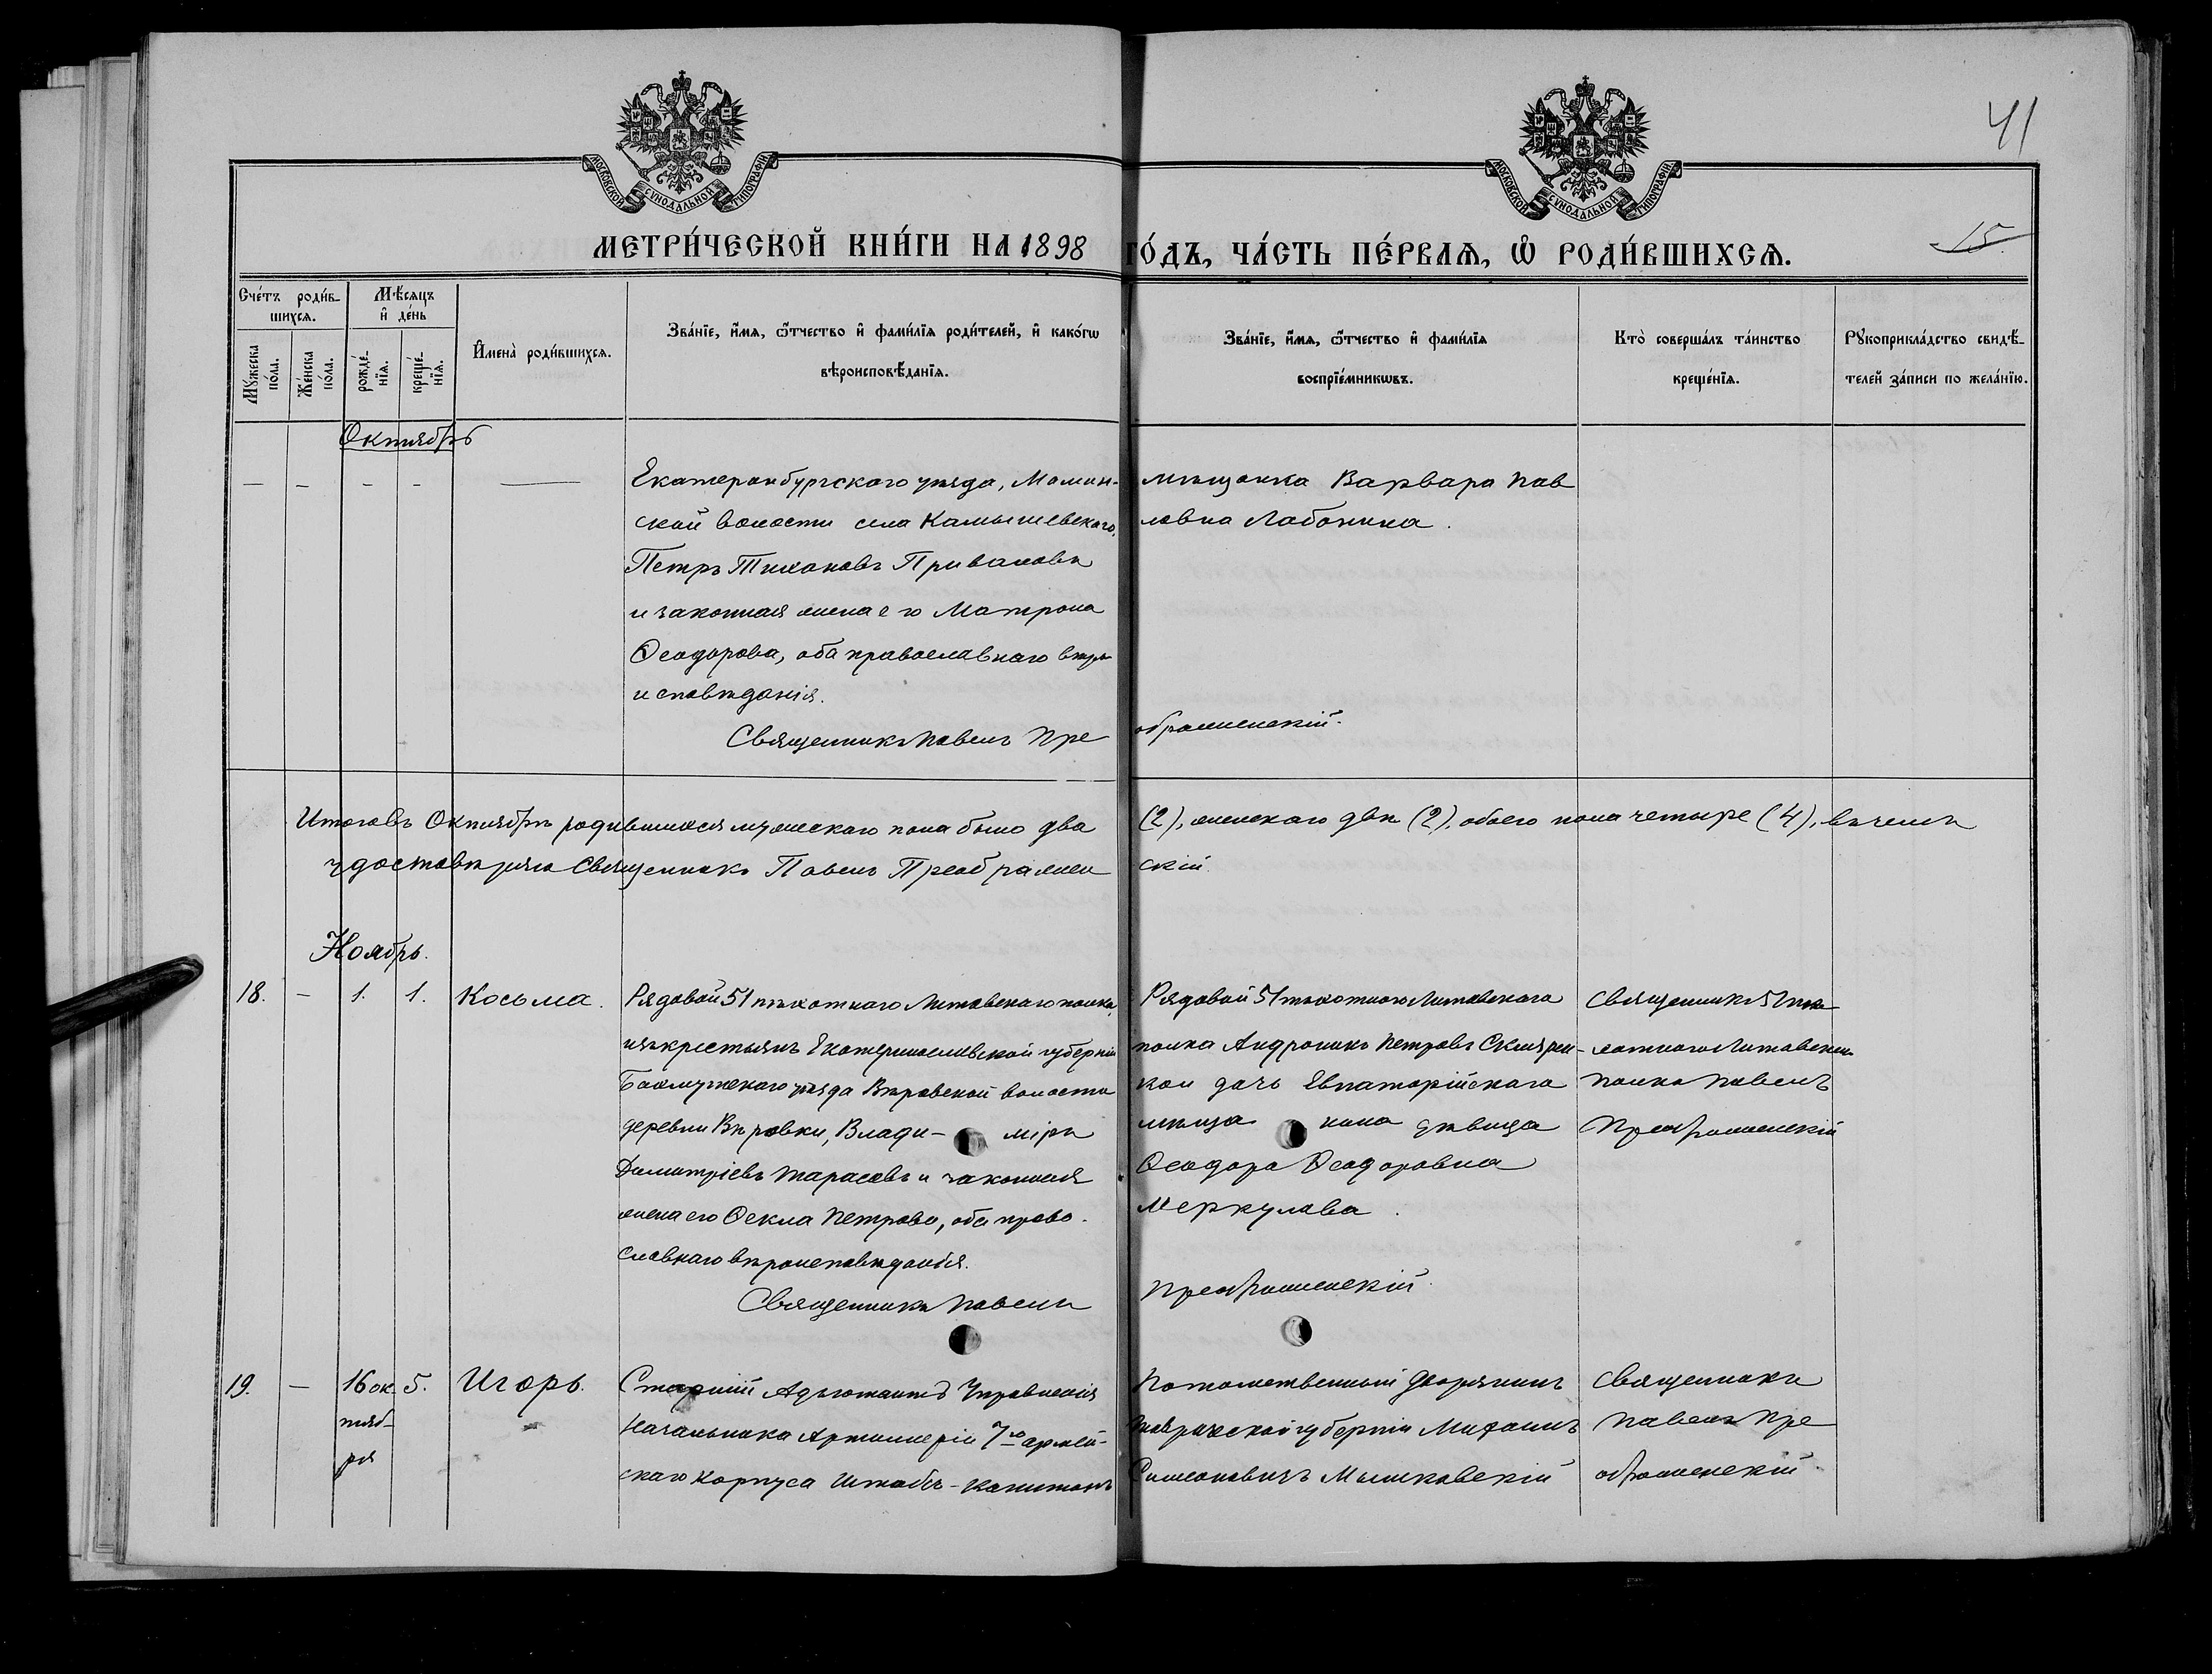 41
МОСКОВСКОЙ СѴНОДАЛЬНОЙ ТИПОГРАФІИ.
МОСКОВСКОЙ СѴНОДАЛЬНОЙ ТИПОГРАФІИ.
МЕТРИ́ЧЕСКОЙ КНИ́ГИ НА 1898 ГО́ДЪ, ЧА́СТЬ ПЕ́РВАѦ, Ѡ҆ РОДИ́ВШИХСѦ.
15
Сче́тъ роди́в-
шихсѧ.
Мꙋ́жеска по́ла.
Же́нска по́ла.
Мѣ́сѧцъ
и҆ де́нь
рожде́-
нїѧ.
креще́-
нїѧ.
И҆мена̀ роди́вшихсѧ.
Зва́нїе, и҆́мѧ, ѻ҆́тчество и҆ фами́лїѧ роди́телей, и҆ како́гѡ
вѣроисповѣ́данїѧ.
Зва́нїе, и҆́мѧ, ѻ҆́тчество и҆ фами́лїѧ
воспрїе́мникѡвъ.
Кто̀ соверша́лъ та́инство
креще́нїѧ.
Рꙋкоприкла́дство свидѣ́-
телей за́писи по жела́нїю.
Октябрь
— — — — —
Екатеринбургского уѣзда, Мамин-
ской волости села Камышевскаго,
Петръ Тихоновъ Приваловъ
и законная жена его Матрона
Ѳеодорова, оба православнаго вѣро-
исповѣданія.
Священникъ Павелъ Пре
ображенскій.
мѣщанка Варвара Пав
ловна Лабонина.
Итого въ Октябрѣ родившихся мужескаго пола было два (2), женскаго двѣ (2), обоего пола четыре (4), въ чемъ
удостовѣряю Священникъ Павелъ Преображен скій.
Ноябрь.
18. — 1. 1. Косьма.
Рядовой 51 пѣхотнаго Литовскаго полка,
изъ крестьянъ Екатеринославской губерніи
Бахмутскаго уѣзда Вѣровской волости
деревни Вѣровки, Влади- міръ
Димитріевъ Тарасовъ и законная
жена его Ѳекла Петрова, оба право-
славнаго вѣроисповѣданія.
Священникъ Павелъ
Преображенскій.
Рядовой 51 пѣхотнаго Литовскаго
полка Андроникъ Петровъ
дочь Евпаторійскаго
мѣща нина дѣвица
Ѳеодора Ѳеодоровна
Меркулова.
Священникъ 51 пѣ-
хотнаго Литовскаго
полка Павелъ
Преображенскій
19. — 16 ок- 5. Игорь.
тяб-
ря
Старшій Адъютантъ Управленія
Начальника Артиллеріи 7го армей-
скаго корпуса Штабсъ-Капитанъ
Потомственный дворянинъ
Таврической губерніи Михаилъ
Симеоновичъ Мышковскій
Священникъ
Павелъ Пре
ображенскій.